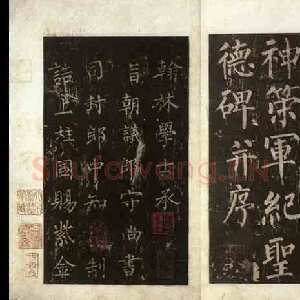 神策軍紀聖
德碑并序
翰林學士承
旨朝議郎守尚書
司封郎中知制
誥上柱國賜紫金
Shufawang.CN